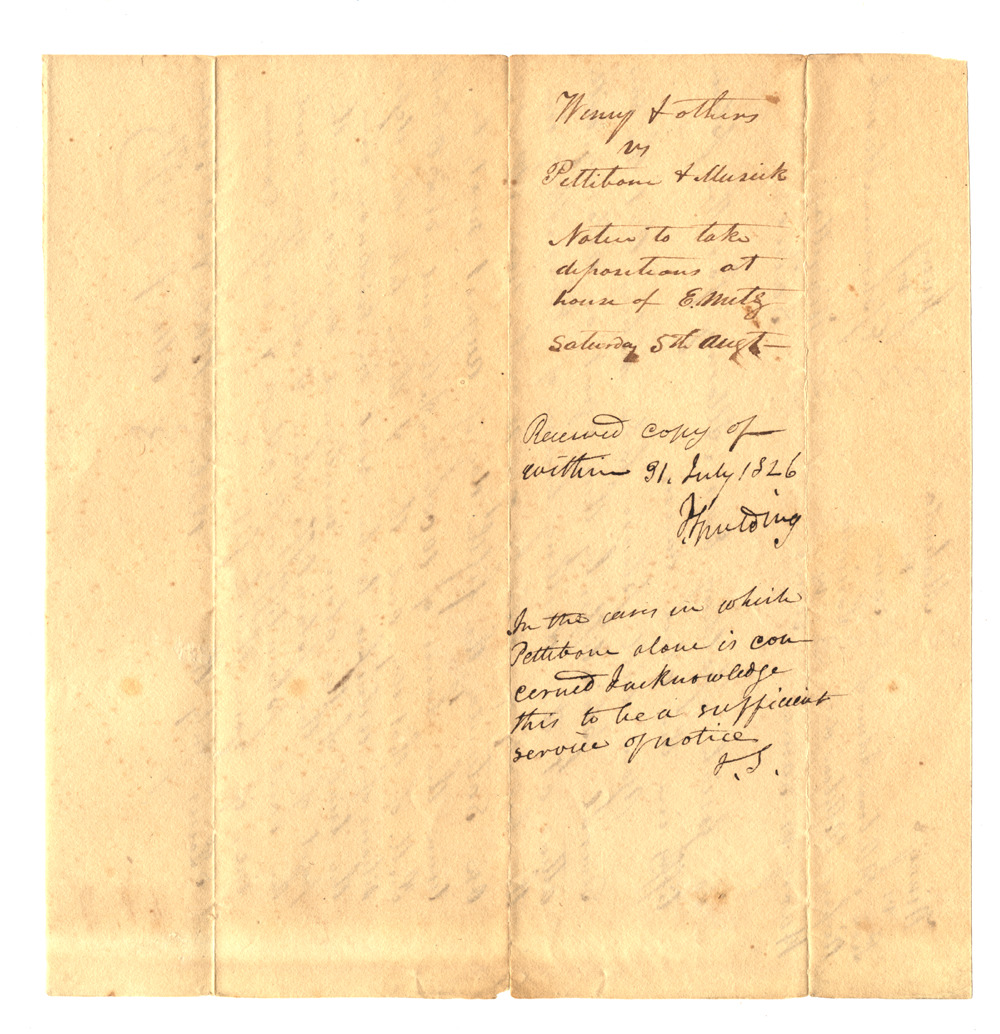 Winny & others
vs
Pettibone & Musick
Notice to take
depositions at
house of E. Metz
Saturday 5th Augt—
Received copy of
within 31. July 1826
J. Spalding
In the cases in which
Pettibone alone is con
cerned I acknowledge
this to be a sufficient
service of notice
J. S.